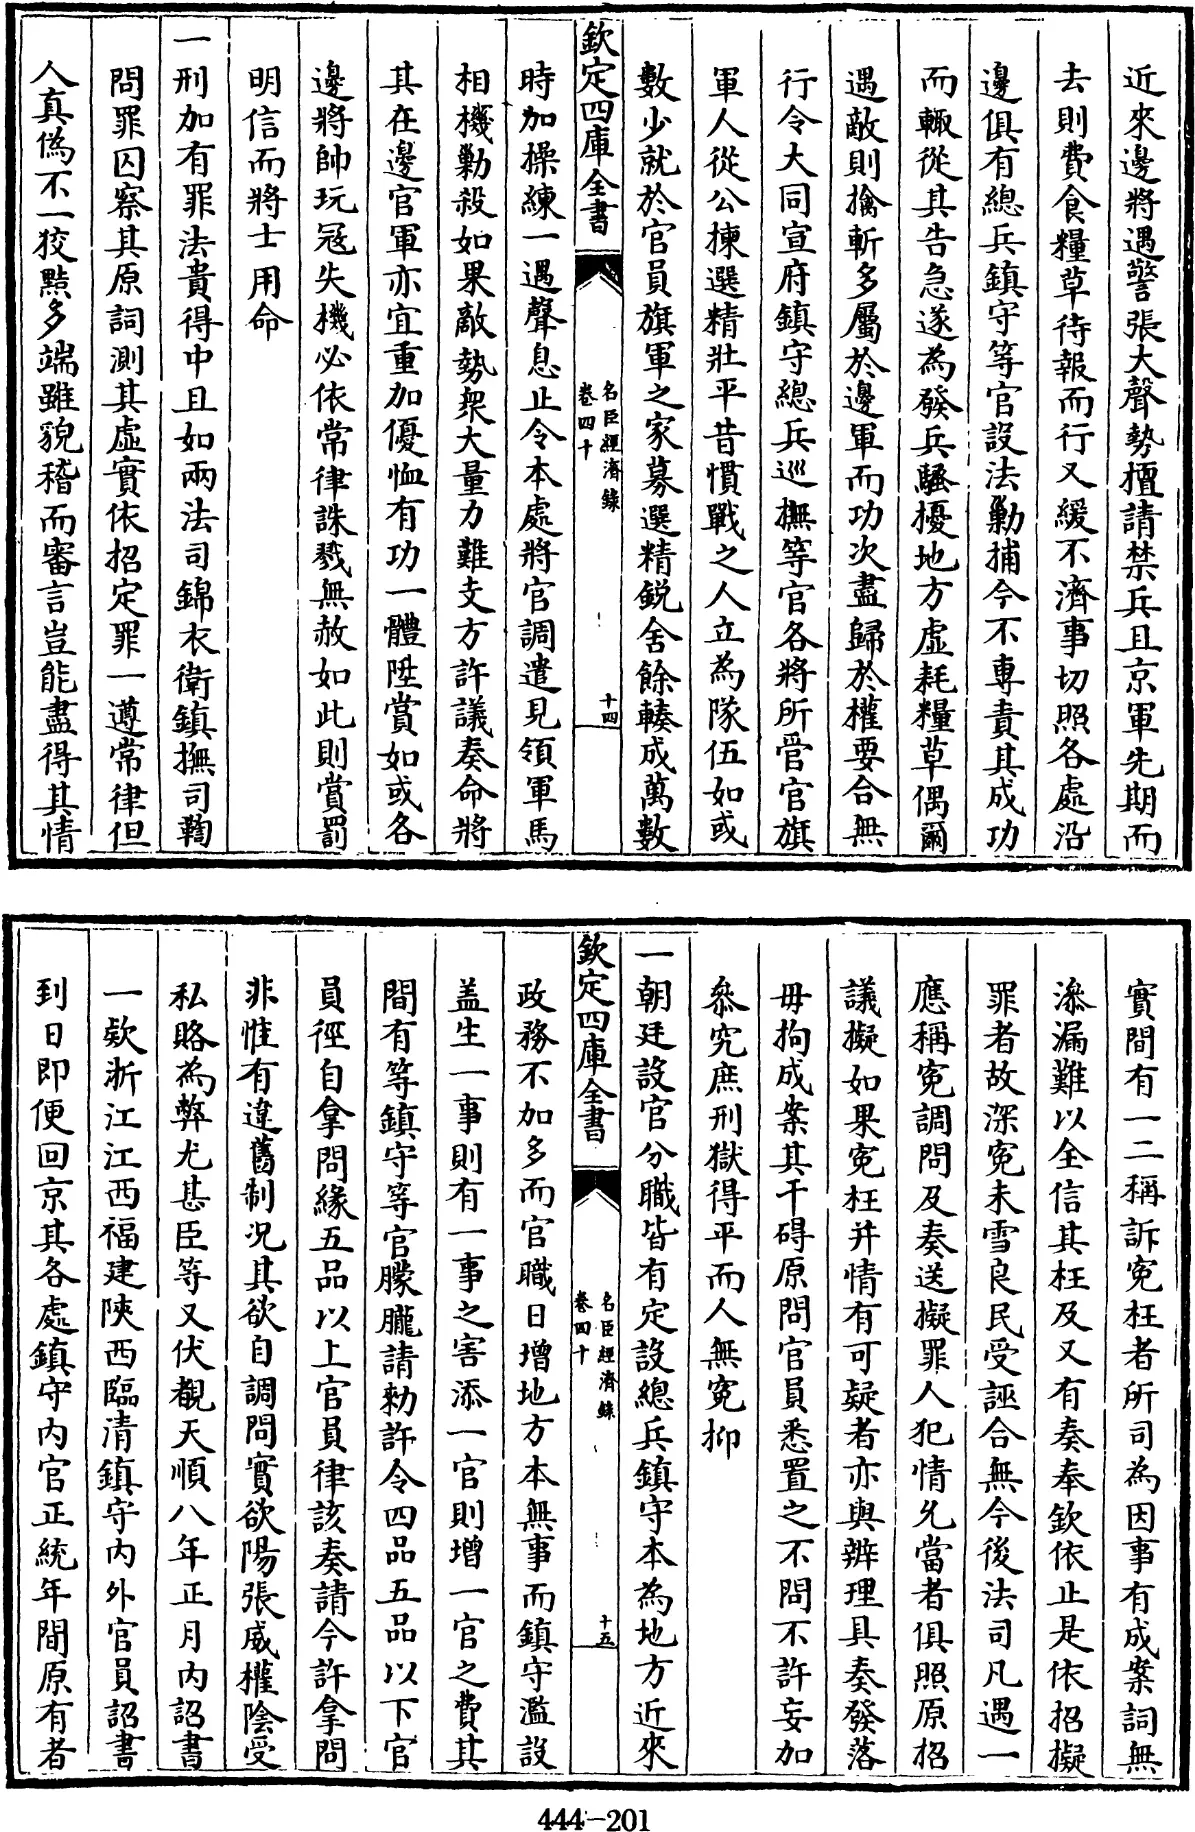 近來邊將遇警張大聲勢擅請禁兵且京軍先期而
去則費食糧草待報而行又緩不濟事切照各處沿
邊俱有總兵鎮守等官設法勦捕今不專責其成功
而輙從其告急遂為發兵騷擾地方虛耗糧草偶爾
遇敵則擒斬多屬於邊軍而功次盡歸於權要合無
行令大同宣府鎮守總兵巡撫等官各將所管官旗
軍人從公揀選精壯平昔慣戰之人立為隊伍如或
數少就於官員旗軍之家募選精銳舍餘輳成萬數
欽定四庫全書
名臣經濟錄
卷四十
十四
時加操練一遇聲息止令本處將官調遣見領軍馬
相機勦殺如果敵勢衆大量力難支方許議奏命將
其在邊官軍亦宜重加優恤有功一體陞賞如或各
邊將帥玩寇失機必依常律誅戮無赦如此則賞罰
明信而將士用命
一刑加有罪法貴得中且如兩法司錦衣衛鎮撫司鞫
問罪囚察其原詞測其虛實依招定罪一遵常律但
人真偽不一狡黠多端雖貌稽而審言豈能盡得其情
實間有一二稱訴寃枉者所司為因事有成案詞無
滲漏難以全信其枉及又有奏奉欽依止是依招擬
罪者故深寃未雪良民受誣合無今後法司凡遇一
應稱寃調問及奏送擬罪人犯情允當者俱照原招
議擬如果寃枉并情有可疑者亦與辨理具奏發落
毋拘成案其干碍原問官員悉置之不問不許妄加
叅究庶刑獄得平而人無寃抑
一朝廷設官分職皆有定設總兵鎮守本為地方近來
欽定四庫全書
名臣經濟錄
卷四十
十五
政務不加多而官職日增地方本無事而鎮守濫設
盖生一事則有一事之害添一官則增一官之費其
間有等鎮守等官朦朧請勅許令四品五品以下官
員徑自拿問緣五品以上官員律該奏請今許拿問
非惟有違舊制况其欲自調問實欲陽張威權陰受
私賂為弊尤甚臣等又伏覩天順八年正月內詔書
一欵浙江江西福建陝西臨清鎮守內外官員詔書
到日即便回京其各處鎮守內官正統年間原有者
444-201